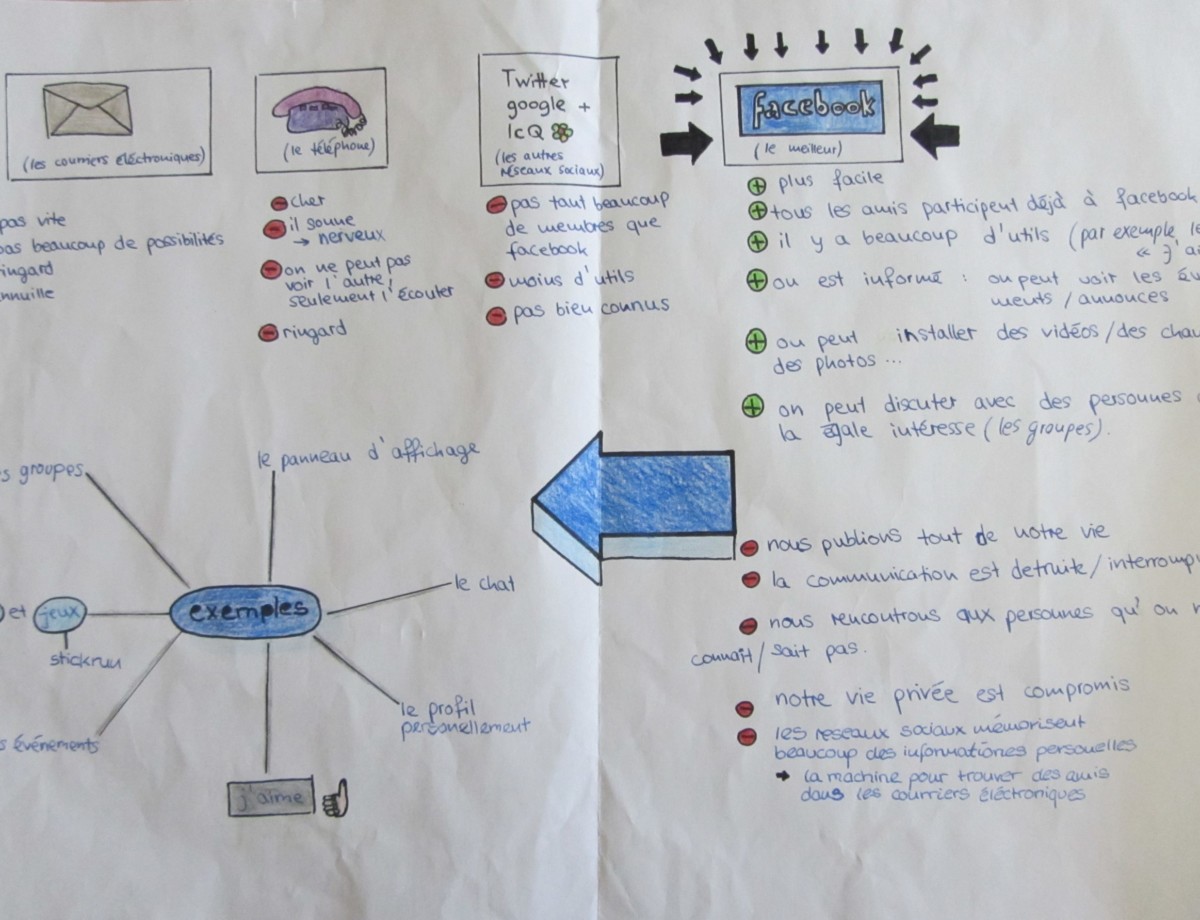 (les courriers éléctroniques)
pas vite
pas beaucoup de possibilités
ringard
ennuille
(le téléphone)
cher
il sonne
→ nerveux
on ne peut pas
voir l'autre,
seulement l'écouter
ringard
Twitter
google +
IcQ
(les autres
réseaux sociaux)
pas taut beaucoup
de membres que
facebook
moins d'utils
pas bien connus
facebook
(le meilleur)
+ plus facile
+ tous les amis participent déjà à facebook
+ il y a beaucoup d'utils (par exemple le
« j'ai
+ on est informé : on peut voir les év
ments / annonces
+ on peut installer des vidéos / des chau
des photos ...
+ on peut discuter avec des personnes
la égale intéresse (les groupes).
- nous publions tout de notre vie
- la communication est detruite / interromp
- nous rencontrons aux personnes qu' on n
connaît / sait pas.
- notre vie privée est compromis
- les reseaux sociaux mémorisent
beaucoup des informationes personelles
→ la machine pour trouver des amis
dans les courriers éléctroniques
exemples
le panneau d'affichage
s groupes
le chat
et jeux
stickrun
le profil
personellement
s événements
j'aime